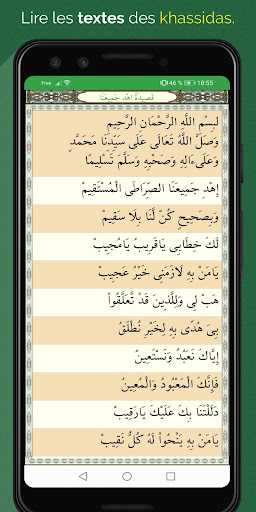 Lire les textes des khassidas.
46 % 18:55
قصيدة اهد جميعنا
لبِسْمِ اللَّهِ الرَّحْمَانِ الرَّحِيمِ
وَصَلَّ اللَّهُ تَعَالَى عَلَى سَيِّدَنَا مَحَمَّدٍ
وَعَلَىءَالِهِ وَصَحْبِهِ وَسَلَّمَ تَسْلِيمًا
اِهْدِ جَمِيعَنَا الصِّرَاطَى الْمُسْتَقِيمْ
وَبِصَحِيحٍ كُنْ لَّنَا بِلَا سَقِيمْ
لَكَ خِطَابِى يَاقَرِيبُ يَامُجِيبْ
يَامَنْ بِهِ لَازَمَنِى خَيْرُ عَجِيبْ
هَبْ لِى وَلِلَّذِينَ قَدْ تَعَلَّقُواْ
بِى هُدًى بِهِ لِخَيْرِ نُطْلَقُ
إِيَّاكَ نَعْبُدُ وَنَسْتَعِينُ
فَإِنَّكَ الْمَعْبُودُ وَالْمُعِينُ
دَلَلْتَنَا بِكَ عَلَيْكَ يَارَقِيبْ
يَامَنْ بِهِ يَنْحُواْ لَهُ كُلُّ نَقِيبْ